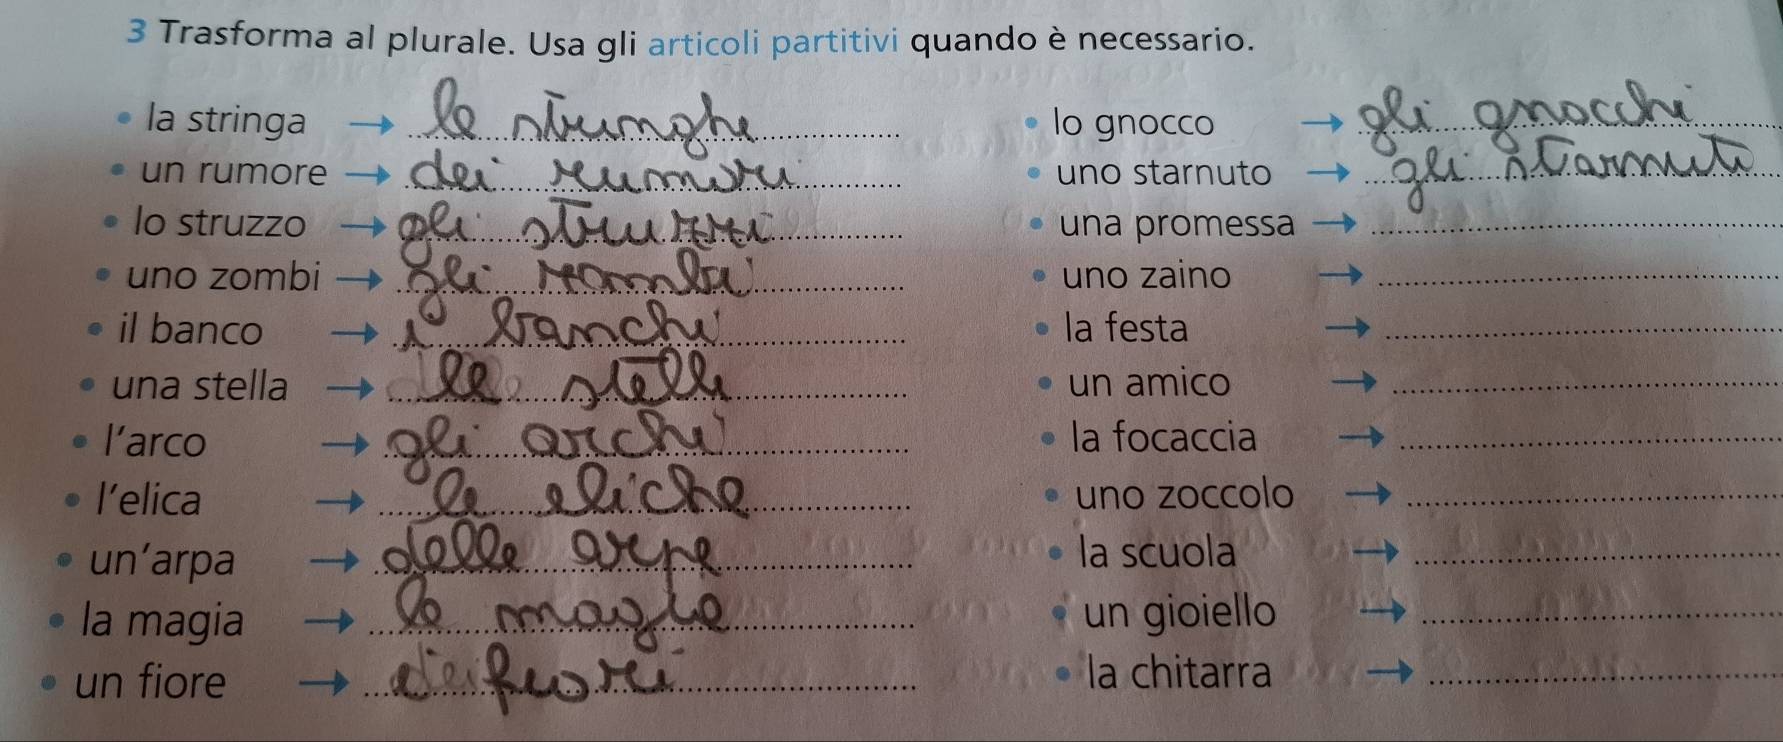 3 Trasforma al plurale. Usa gli articoli partitivi quando è necessario.
• la stringa → le stringhe
• un rumore → dei rumori
• lo struzzo → gli struzzi
• uno zombi → gli zombi
• il banco → i banchi
• una stella → le stelle
• l'arco → gli archi
• l'elica → le eliche
• un'arpa → delle arpe
• la magia → le magie
• un fiore → dei fiori
• lo gnocco → gli gnocchi
• uno starnuto → gli starnuti
• una promessa →
• uno zaino →
• la festa →
• un amico →
• la focaccia →
• uno zoccolo →
• la scuola →
• un gioiello →
• la chitarra →